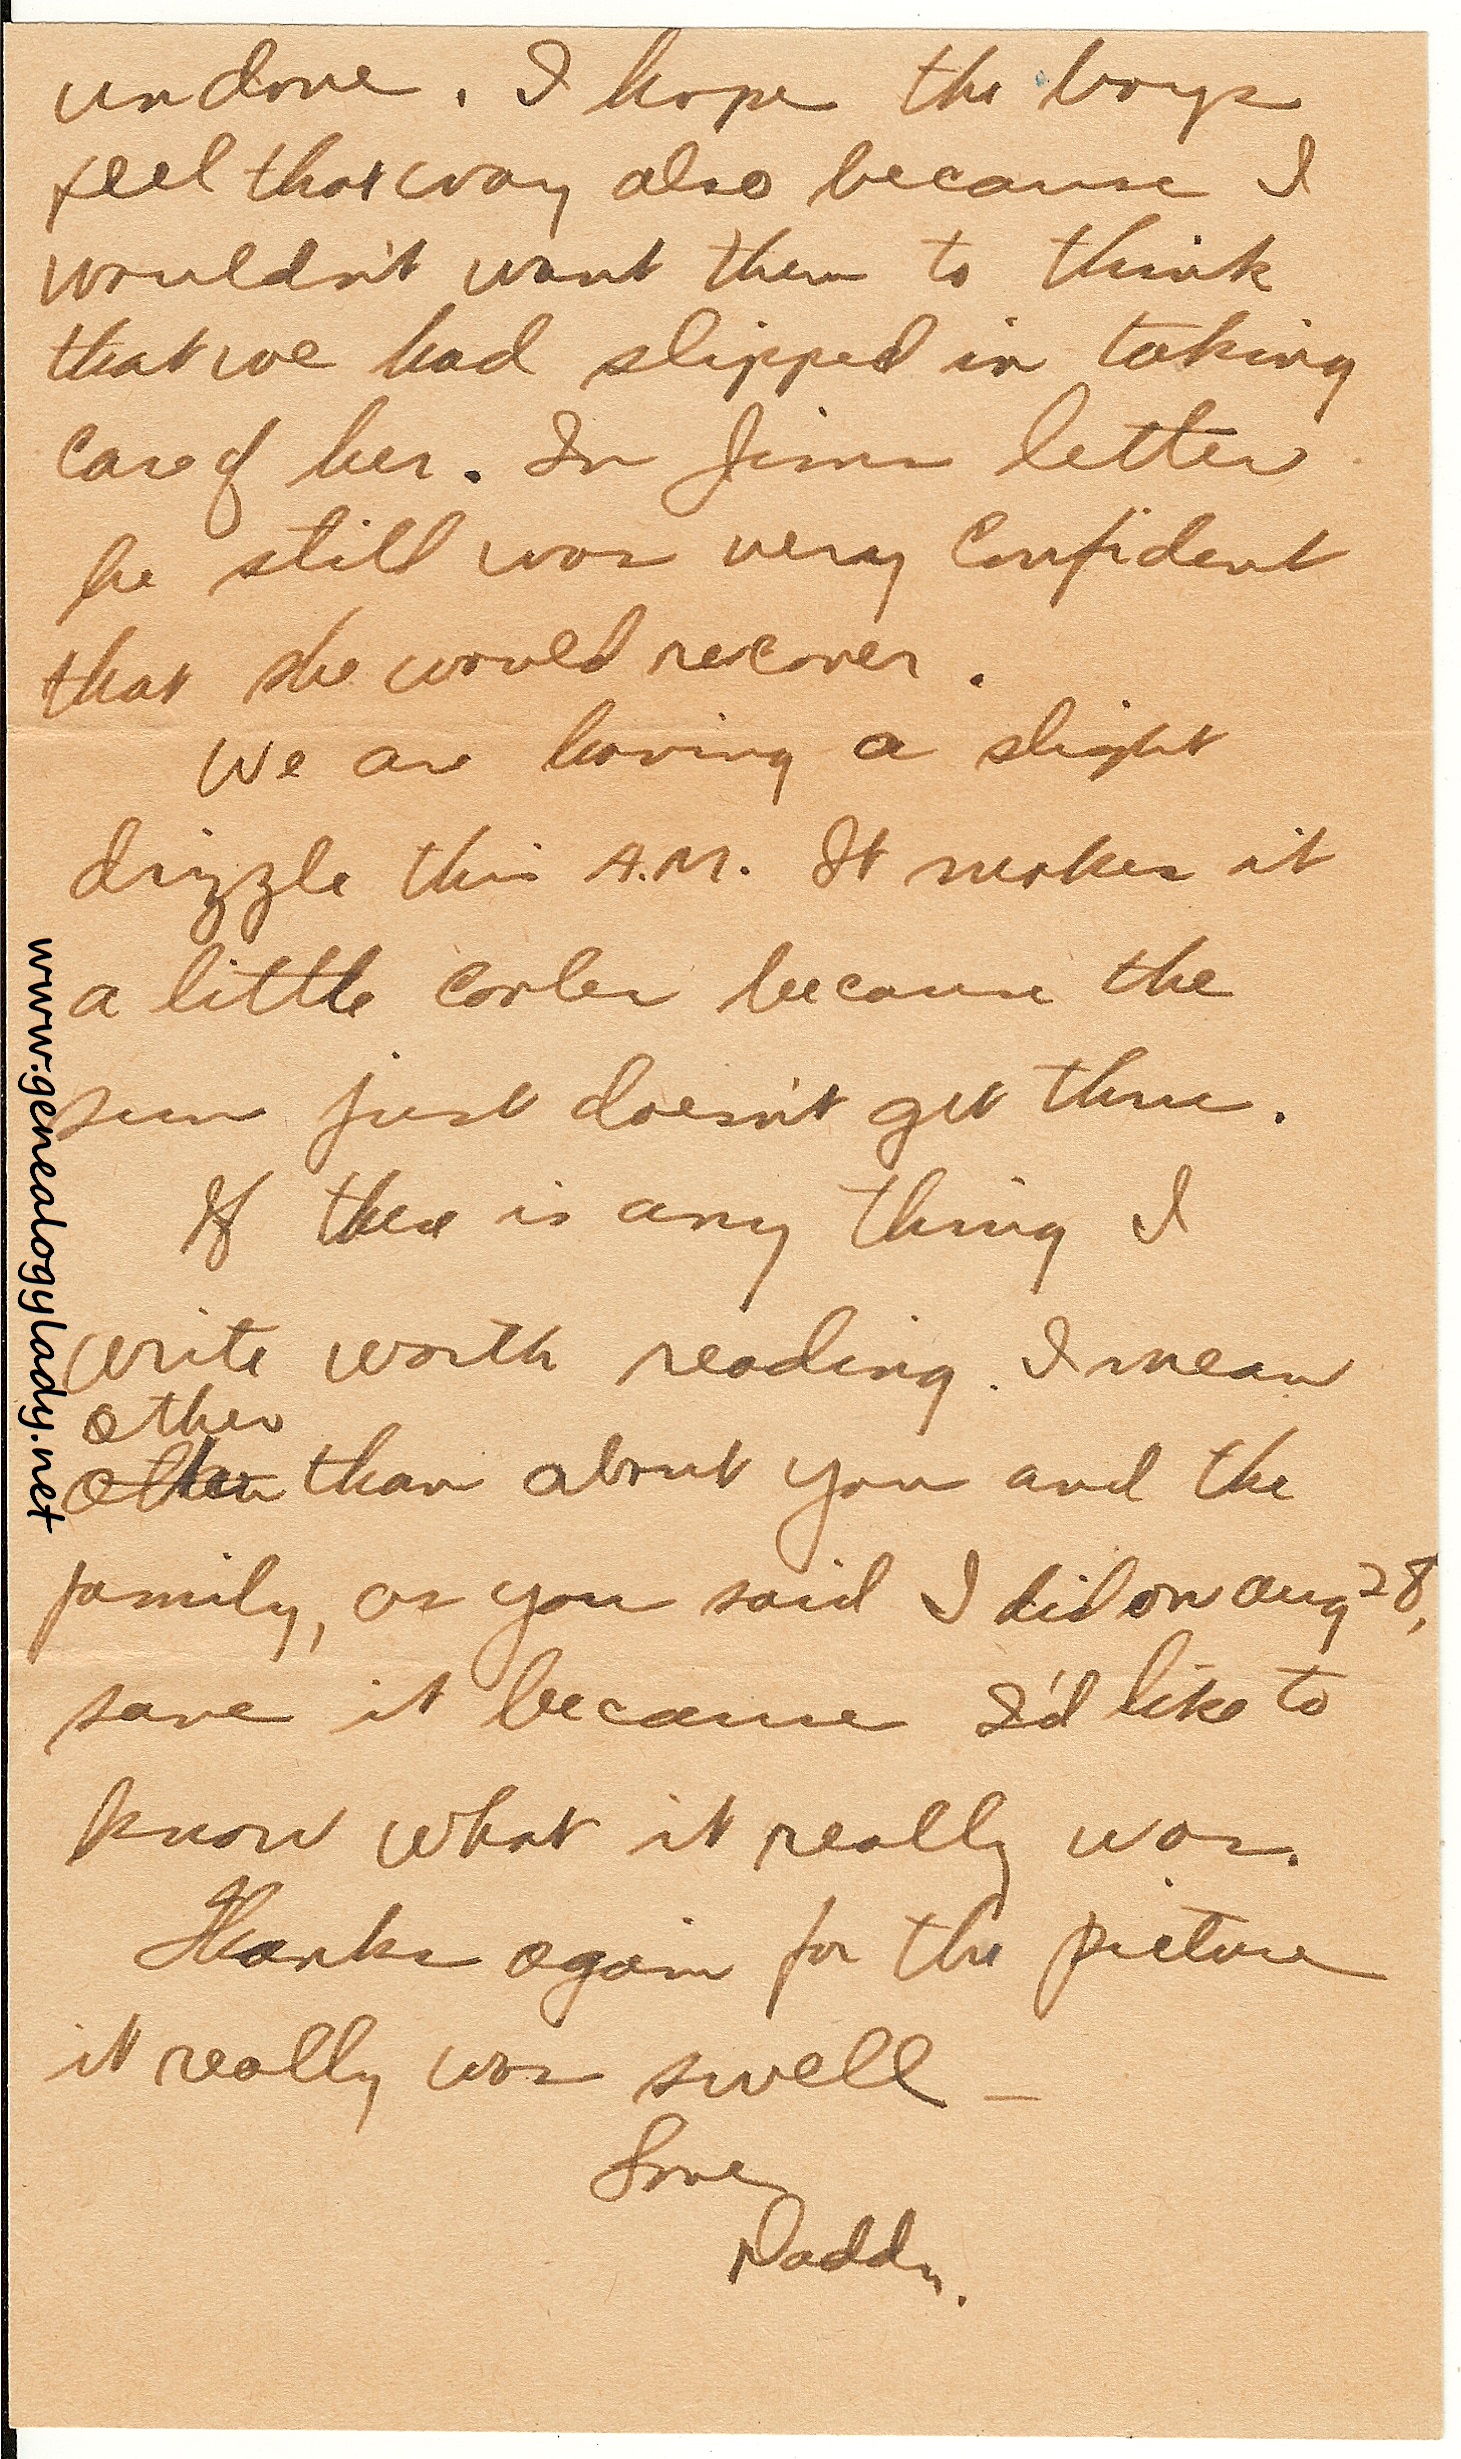 undone. I hope the boys
feel that way also because I
wouldn't want them to think
that we had slipped in taking
care of her. In Jims letter
he still was very confident
that she would recover.
We are having a slight
drizzle this A.M. It makes it
a little cooler because the
sun just doesn't get thru.
If there is any thing I
write worth reading. I mean
other
other than about you and the
family, as you said I did on Aug 28,
save it because I'd like to
know what it really was.
Thanks again for the picture
it really was swell –
Love
Daddy.
www.genealogylady.net